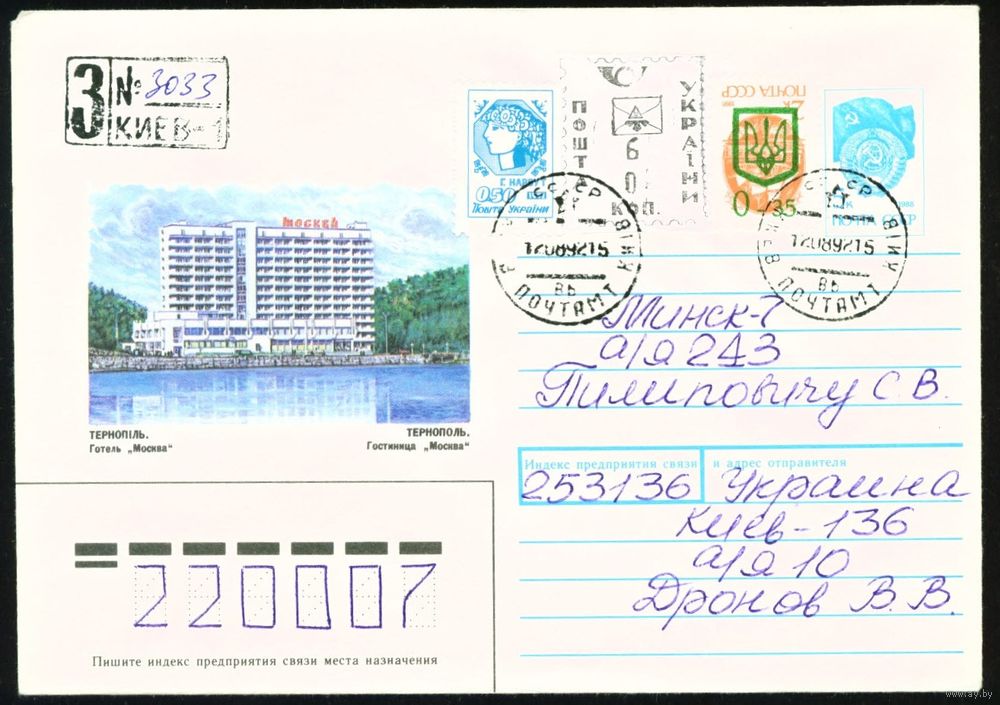 З № 3033
КИЕВ-1
Г. НАРБУТ
0.50
Пошта України
ПОШТА
УКРАЇНИ
6
0
коп.
ПОЧТА СССР
0,35
1988
ПОЧТА СССР
СССР
КИЇВ
12089215
ПОЧТАМТ
СССР
КИЇВ
КИЕВ
12089215
ПОЧТАМТ
МОСКВА
ТЕРНОПІЛЬ.
Готель „Москва“
ТЕРНОПОЛЬ.
Гостиница „Москва“
Минск-7
а/я 243
Пилиповичу С.В.
Индекс предприятия связи и адрес отправителя
253136 Украина
Киев-136
а/я 10
Дронов В.В.
220007
Пишите индекс предприятия связи места назначения
www.ay.by